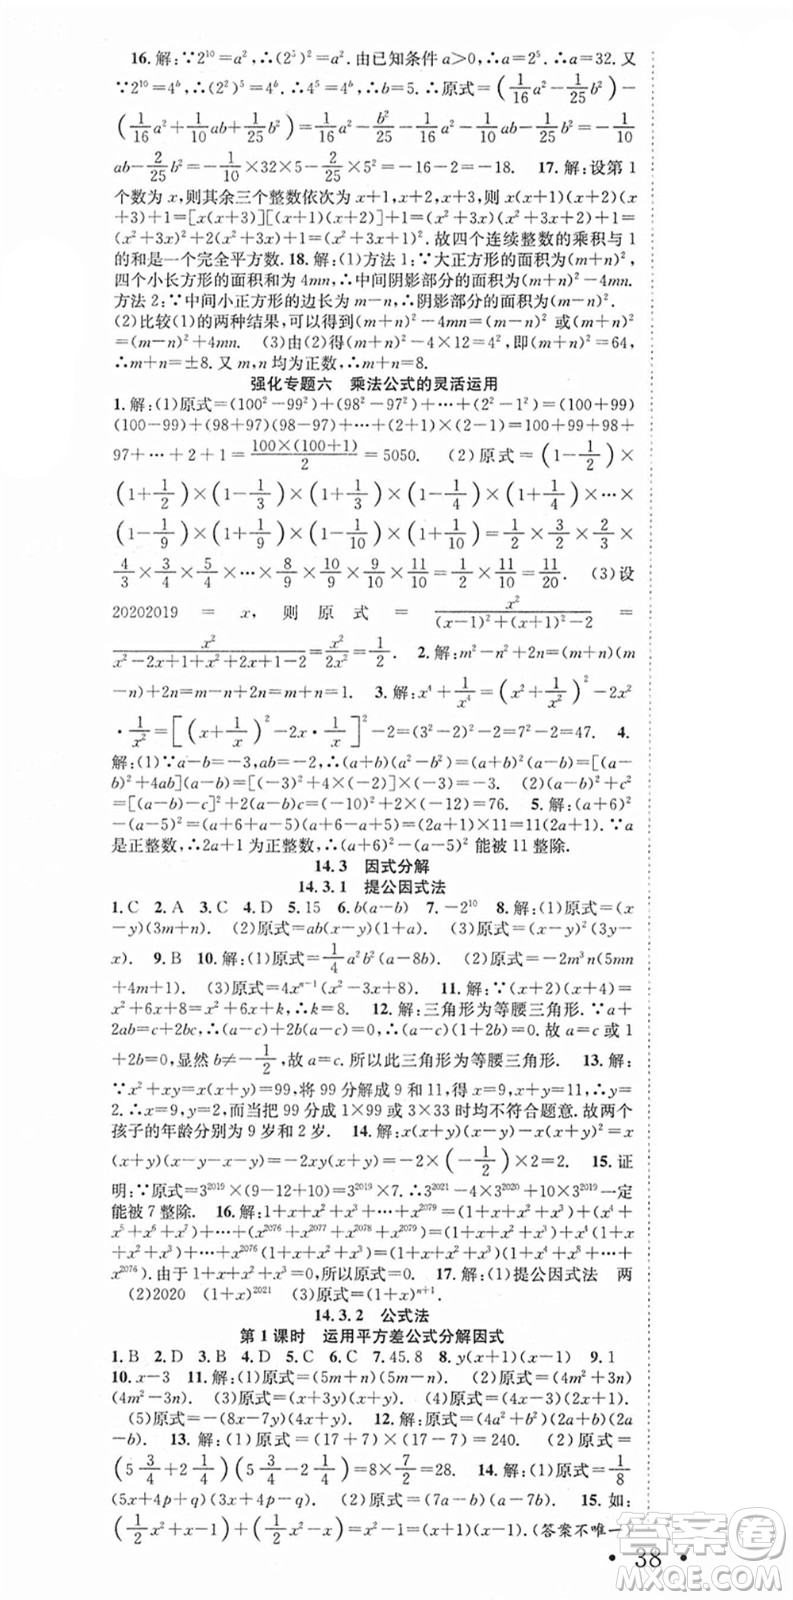 16. 解:∵2¹⁰=a²,∴(2⁵)²=a². 由已知条件 a>0,∴a=2⁵. ∴a=32. 又
∵2¹⁰=4ᵇ,∴(2²)⁵=4ᵇ. ∴4⁵=4ᵇ,∴b=5. ∴原式=(1/16 a²-1/25 b²)-
(1/16 a²+1/10 ab+1/25 b²)=1/16 a²-b²/25-1/16 a²-1/10 ab-1/25 b²=-1/10
ab-2/25 b²=-1/10×32×5-2/25×5²=-16-2=-18. 17. 解:设第 1
个数为 x,则其余三个整数依次为 x+1,x+2,x+3,则 x(x+1)(x+2)(x
+3)+1=[x(x+3)][(x+1)(x+2)]+1=(x²+3x)(x²+3x+2)+1=
(x²+3x)²+2(x²+3x)+1=(x²+3x+1)². 故四个连续整数的乘积与 1
的和是一个完全平方数. 18. 解:(1)方法 1:∵大正方形的面积为(m+n)²,
四个小长方形的面积和为 4mn,∴中间阴影部分的面积为(m+n)²-4mn.
方法 2:∵中间小正方形的边长为 m-n,∴阴影部分的面积为(m-n)².
(2)比较(1)的两种结果,可以得到(m+n)²-4mn=(m-n)² 或(m+n)²
=(m-n)²+4mn. (3)由(2)得(m+n)²-4×12=4²,∴(m+n)²=64,
∴m+n=±8. 又 m,n 均为正数,∴m+n=8.
强化专题六 乘法公式的灵活运用
1. 解:(1)原式=(100²-99²)+(98²-97²)+…+(2²-1²)=(100+99)
(100-99)+(98+97)(98-97)+…+(2+1)×(2-1)=100+99+98+
97+…+2+1=100×(100+1)/2=5050. (2)原式=(1-1/2)×
(1+1/2)×(1-1/3)×(1+1/3)×(1-1/4)×(1+1/4)×…×
(1-1/9)×(1+1/9)×(1-1/10)×(1+1/10)=1/2×3/2×2/3×
4/3×3/4×5/4×…×8/9×10/9×9/10×11/10=1/2×11/10=11/20. (3)设
20202019=x,则原式=x²/((x-1)²+(x+1)²-2)=
x²/(x²-2x+1+x²+2x+1-2)=x²/2x²=1/2. 2. 解:m²-n²+2n=(m+n)(m
-n)+2n=m-n+2n=m+n=1. 3. 解:x⁴+1/x⁴=(x²+1/x²)²-2x²
·1/x²=[(x+1/x)²-2x·1/x]²-2=(3²-2)²-2=7²-2=47. 4.
解:(1)∵a-b=-3,ab=-2,∴(a+b)²(a-b)=(a+b)²(a-b)=[(a-
b)²+4ab](a-b)=[(-3)²+4×(-2)]×(-3)=-3. (2)(a-b)²+c²
=[(a-b)-c]²+2(a-b)c=(-10)²+2×(-12)=76. 5. 解:(a+6)²
-(a-5)²=(a+6+a-5)(a+6-a+5)=(2a+1)×11=11(2a+1). ∵a
是正整数,∴2a+1 是正整数,∴(a+6)²-(a-5)² 能被 11 整除.
14.3 因式分解
14.3.1 提公因式法
1. C 2. A 3. C 4. D 5. 15 6. b(a-b) 7. -2¹⁰ 8. 解:(1)原式=(x
-y)(3m+n). (2)原式=ab(x-y)(1+a). (3)原式=(x-y)(3y-
x). 9. B 10. 解:(1)原式=1/4 a²b²(a-8b). (2)原式=-2m³n(5m
+4m+1). (3)原式=4xⁿ⁻¹(x²-2x+6). 11. 解:x(x+2)+(x+4)=
x²+2x+x+k=x²+6x+x+k,∴k=8. 12. 解:三角形为等腰三角形. ∵a+
2ab=c+2bc,∴(a-c)+2b(a-c)=0,∴(a-c)(1+2b)=0. 故 a=c 或 1
+2b=0,显然 b≠-1/2,故 a=c. 所以此三角形为等腰三角形. 13. 解:
∵x²+xy=x(x+y)=99,将 99 分解成 9 和 11,得 x=9,x+y=11,∴y=
2. ∴x=9,y=2,当把 99 分成 1×99 或 3×33 时均不符合题意. 故两个
孩子的年龄分别为 9 岁和 2 岁. 14. 解:x(x+y)(x-y)-x(x+y)²=x
(x+y)(x-y-x-y)=-2xy(x+y)=-2×(-1/2)×2=2. 15. 证
明:∵原式=3²⁰¹⁹×(9-12+10)=3²⁰¹⁹×7,∴3²⁰²¹-4×3²⁰²⁰+10×3²⁰¹⁹一定
能被 7 整除. 16. 解:1+x+x²+x³+…+x²⁰⁷⁹=(1+x+x²+x³)+(x⁴+
x⁵+x⁶+x⁷)+…+(x²⁰⁷⁶+x²⁰⁷⁷+x²⁰⁷⁸+x²⁰⁷⁹)=(1+x+x²+x³)+x⁴(1+
x+x²+x³)+…+x²⁰⁷⁶(1+x+x²+x³)=(1+x+x²+x³)(1+x⁴+x⁸+…
+x²⁰⁷⁶). 由于 1+x+x²+x³=0,所以原式=0. 17. 解:(1)提公因式法 两
(2)2020 (1+x)²⁰²¹ (3)原式=(1+x)ⁿ⁺¹
14.3.2 公式法
第 1 课时 运用平方差公式分解因式
1. B 2. D 3. B 4. D 5. C 6. C 7. 45.8 8. y(x+1)(x-1) 9. 1
10. x-3 11. 解:(1)原式=(5m+n)(5m-n). (2)原式=(4m²+3n)
(4m²-3n). (3)原式=(4m+2n)(2m+4n). (4)原式=(5x-1)(x+1).
(5)原式=-(8x-7y)(4x-y). 12. 解:原式=(4a²+b²)(2a+b)(2a
-b). 13. 解:(1)原式=(17+7)×(17-7)=240. (2)原式=
(5 3/4+2 1/4)(5 3/4-2 1/4)=8×7/2=28. 14. 解:(1)原式=1/8
(5x+4p+q)(3x-4p-q). (2)原式=(7a-b)(a-7b). 15. 如:
(1/2 x²+x-1)+(1/2 x²-x)=x²-1=(x+1)(x-1). (答案不唯一)
答案圈
MXQE.COM
• 38 •